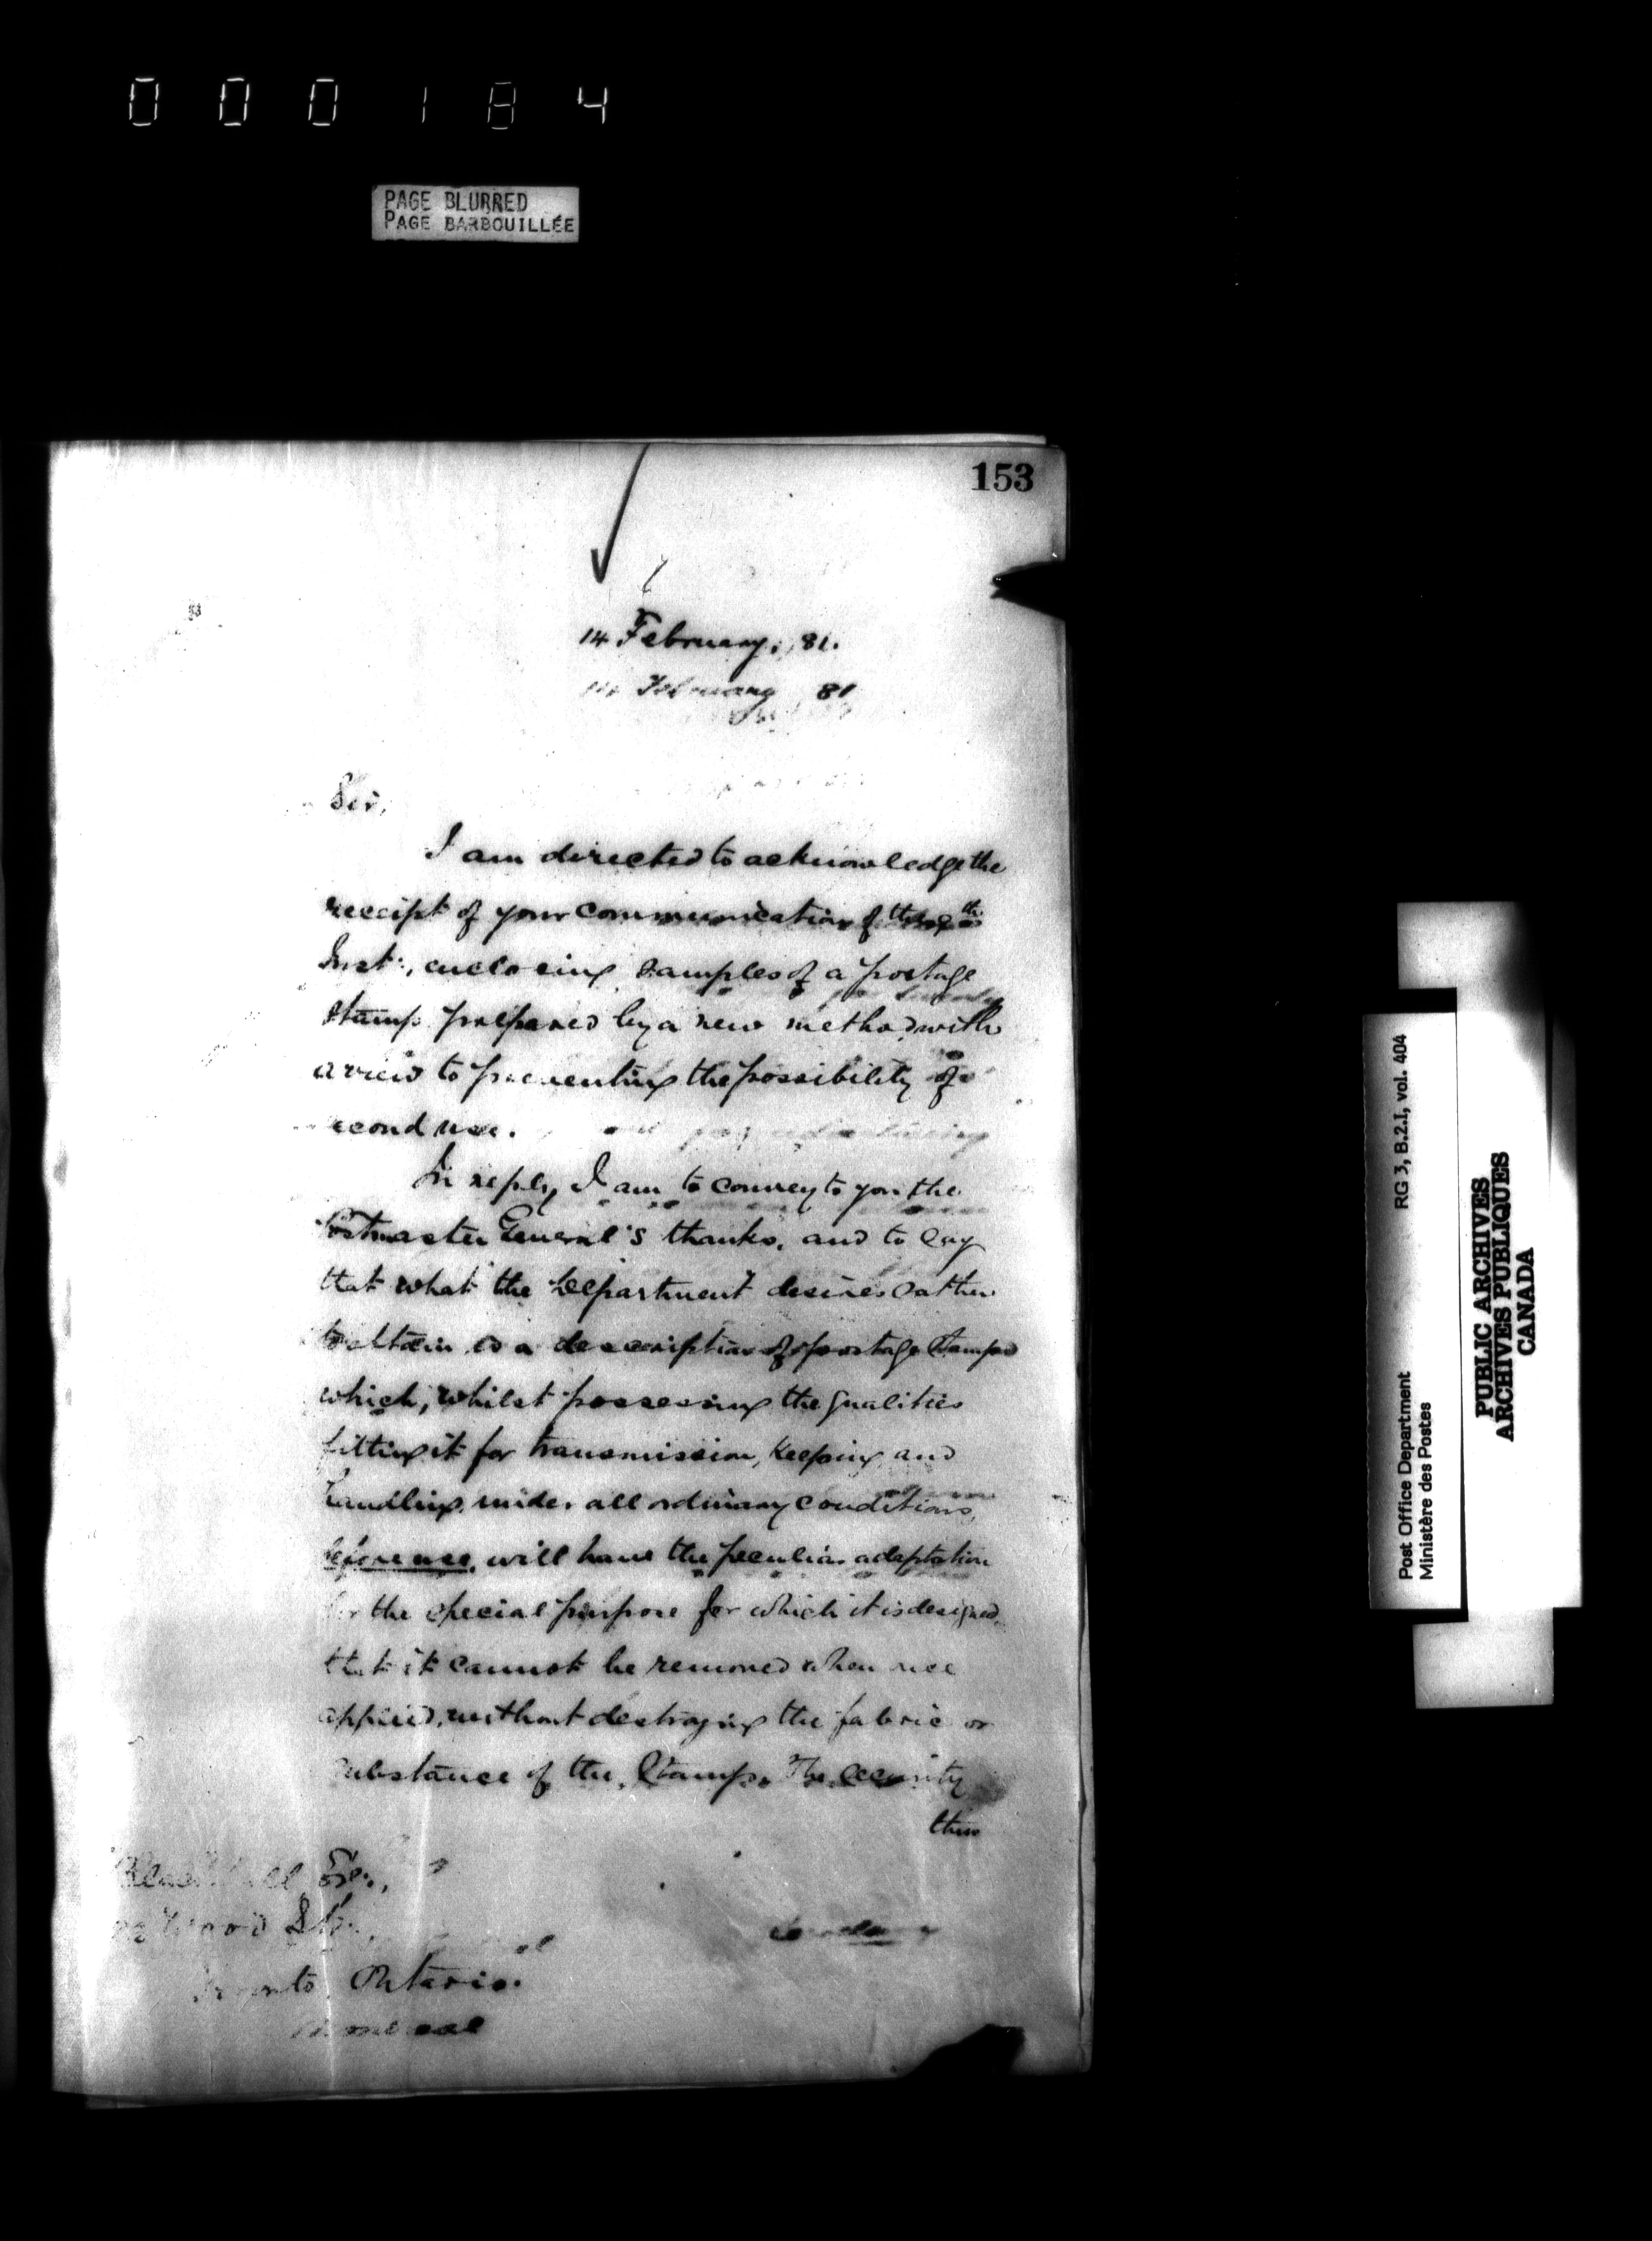 000184
PAGE BLURRED
PAGE BARBOUILLÉE
153
14 February, 81.
14 February 81
Sir,
I am directed to acknowledge the
receipt of your communication of the
Inst:, enclosing samples of a postage
stamp prepared by a new method, with
a view to preventing the possibility of
second use.
In reply, I am to convey to you the
Postmaster General's thanks, and to say
that what the Department desires rather
to obtain is a description of postage stamps
which, whilst possessing the qualities
fitting it for transmission, keeping and
handling, under all ordinary conditions,
before use, will have the peculiar adaptation
for the special purpose for which it is designed,
that it cannot be removed when once
applied, without destroying the fabric or
substance of the Stamp. The security
thus
Esq.,
St.
Toronto, Ontario.
Montreal
RG 3, B.2.I, vol. 404
Post Office Department
Ministère des Postes
PUBLIC ARCHIVES
ARCHIVES PUBLIQUES
CANADA